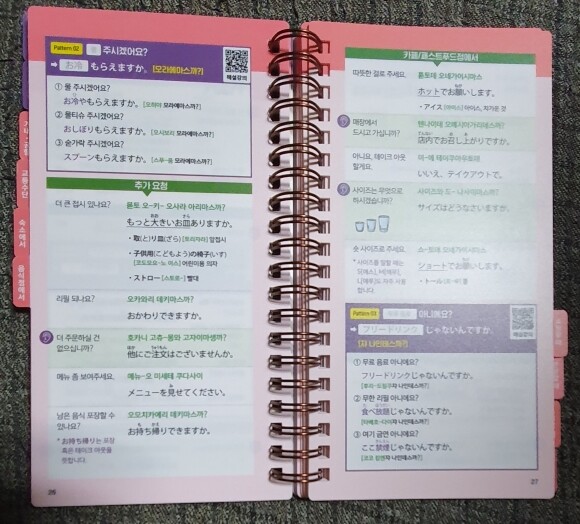 Pattern 02 물 주시겠어요?
お冷 もらえますか。 [모라에마스까?]
해설강의
① 물 주시겠어요?
お冷やもらえますか。 [오히야 모라에마스까?]
② 물티슈 주시겠어요?
おしぼりもらえますか。 [오시보리 모라에마스까?]
③ 숟가락 주시겠어요?
スプーンもらえますか。 [스푸-음 모라에마스까?]
추가 요청
더 큰 접시 있나요?
못토 오-키- 오사라 아리마스까?
もっと大きいお皿ありますか。
・取(と)り皿(ざら) [토리자라] 앞접시
・子供用(こどもよう)の椅子(いす)
[코도모요-노 이스] 어린이용 의자
・ストロー [스토로-] 빨대
리필 되나요?
오카와리 데키마스까?
おかわりできますか。
더 주문하실 건
없으십니까?
호카니 고츄-몽와 고자이마셍까?
他にご注文はございませんか。
메뉴 좀 보여주세요.
메뉴-오 미세테 쿠다사이
メニューを見せてください。
남은 음식 포장할 수
있나요?
* お持ち帰り는 포장
혹은 테이크 아웃을
뜻합니다.
오모치카에리 데키마스까?
お持ち帰りできますか。
26
카페/패스트푸드점에서
따뜻한 걸로 주세요.
홋토데 오네가이시마스
ホットでお願いします。
・アイス [아이스] 아이스, 차가운 것
매장에서
드시고 가십니까?
텐나이데 오메시아가리데스까?
店内でお召し上がりですか。
아니요, 테이크 아웃
할게요.
이-에 테이쿠아우토데
いいえ、テイクアウトで。
사이즈는 무엇으로
하시겠습니까?
사이즈와 도- 나사이마스까?
サイズはどうなさいますか。
숏 사이즈로 주세요.
쇼-토데 오네가이시마스
ショートでお願いします。
・トール [토-루] 톨
Pattern 03
아니에요?
フリードリンク じゃないんですか。
[쟈 나인데스까?]
해설강의
① 무료 음료 아니에요?
フリードリンクじゃないんですか。
[후리-도링쿠쟈 나인데스까?]
② 무한 리필 아니에요?
食べ放題じゃないんですか。
[타베호-다이쟈 나인데스까?]
③ 여기 금연 아니에요?
ここ禁煙じゃないんですか。
[코코 킹엔쟈 나인데스까?]
27
교통수단
숙소에서
음식점에서